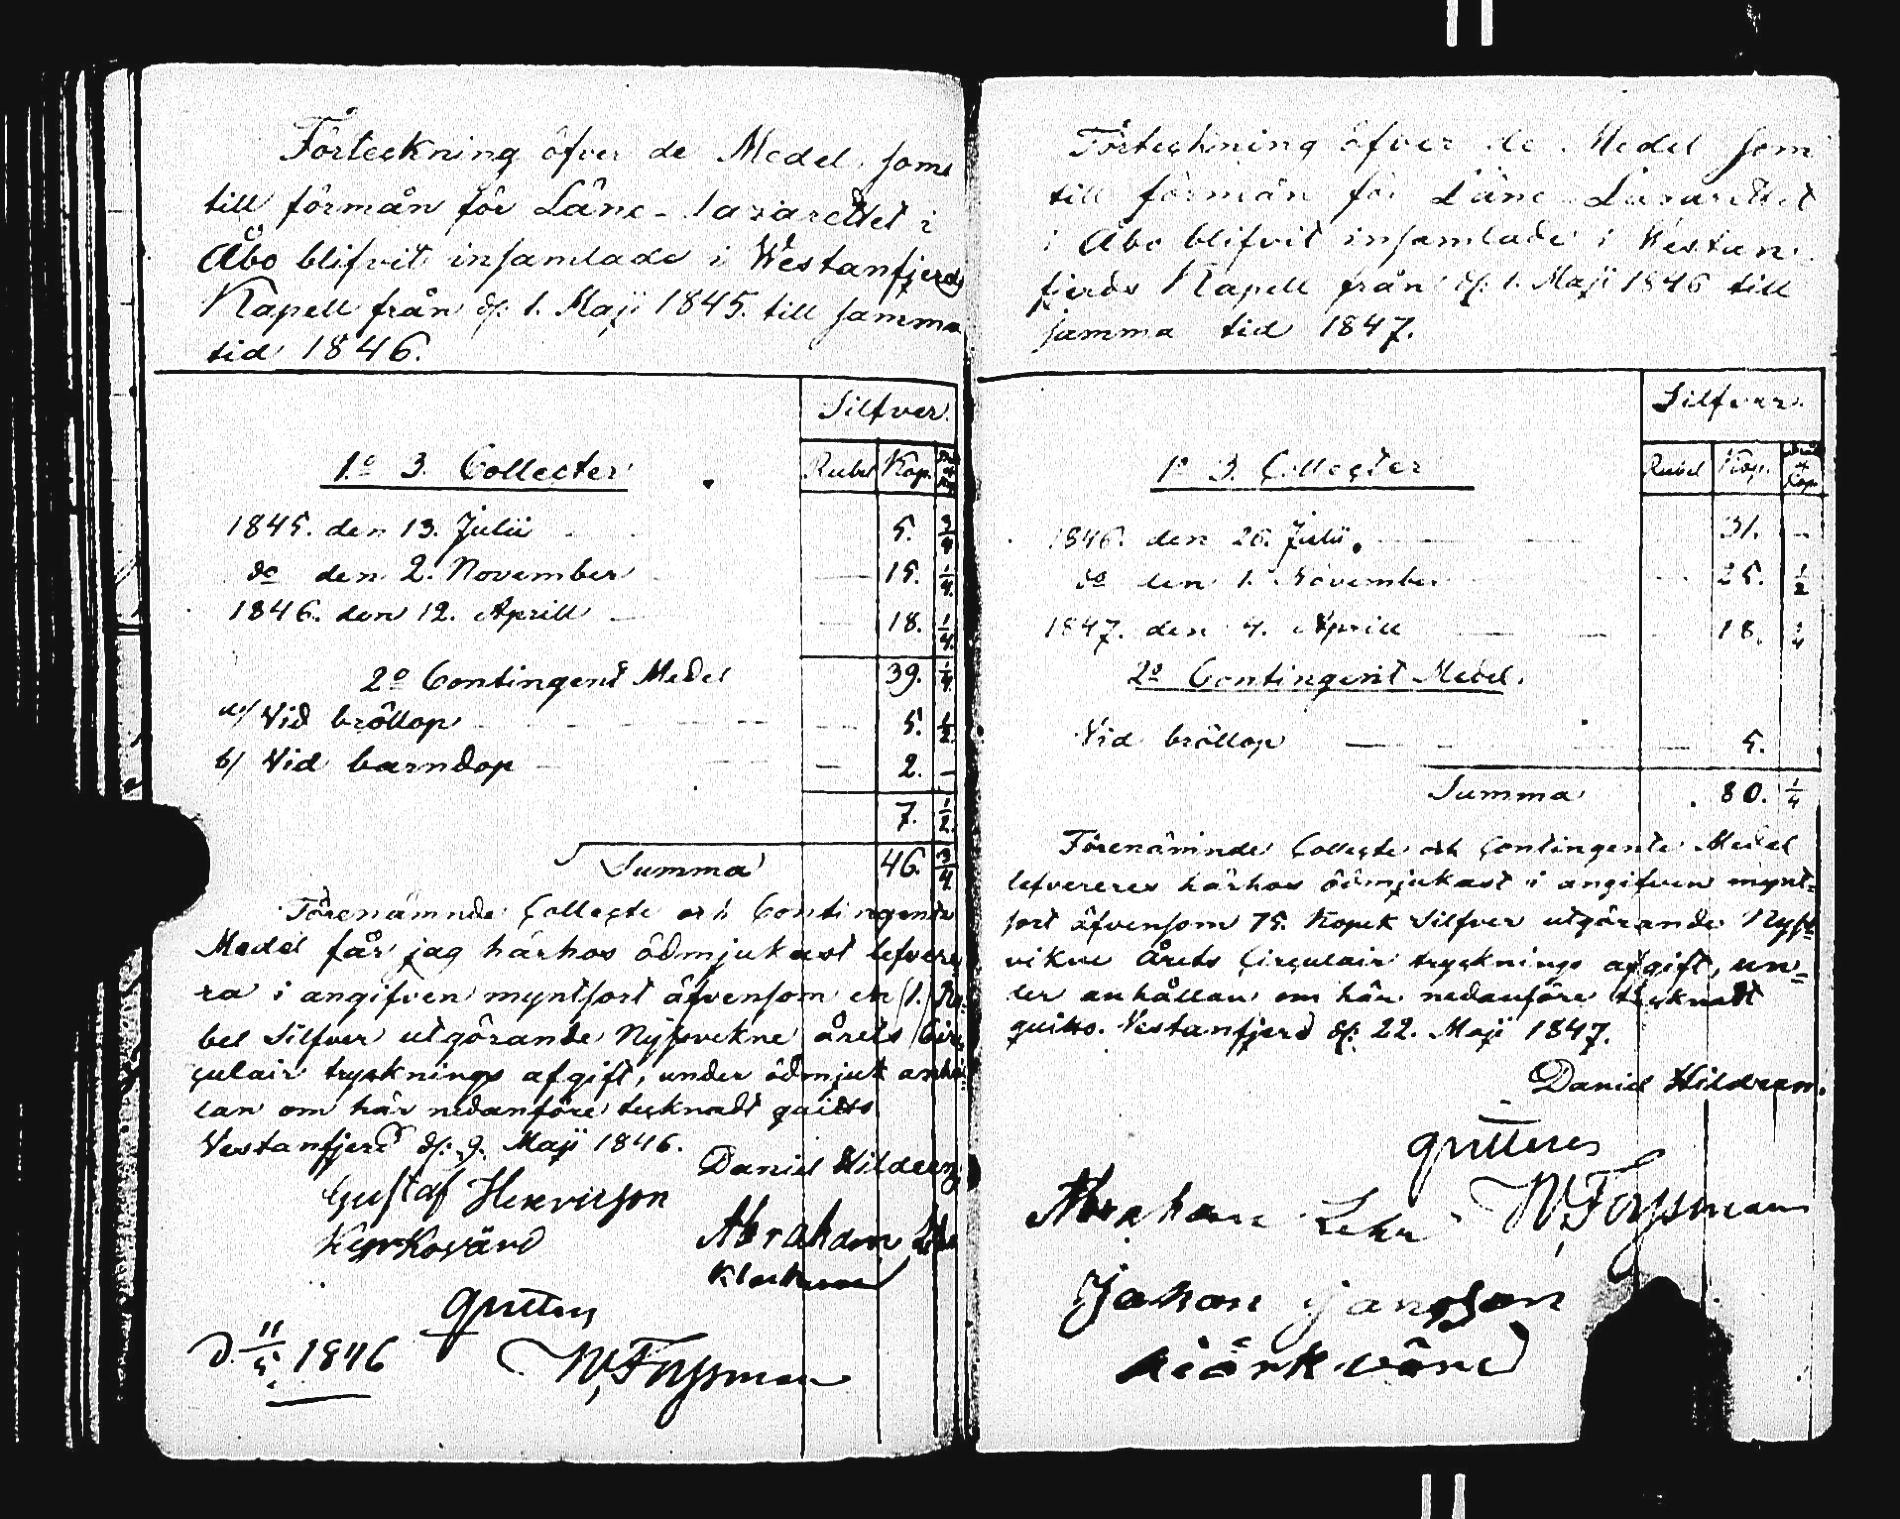 Förteckning öfver de Medel som
till förmån för Läne-lazarettet i
Åbo blifvit insamlade i Westanfjerds
Kapell från d: 1. Maji 1845. till samma
tid 1846.
Silfver.
1:o 3. Collecter
Rubel Kop.
1845. den 13. Julii 5. 3/4
do den 2. November 15. 1/4
1846. den 12. Aprill 18. 1/4
39. 1/4
2:o Contingent Medel
a/ Vid bröllop 5. 1/2
b/ Vid barndop 2. –
7. 1/2
Summa 46. 3/4
Förenämnde Collecte och Contingents
Medel får jag härhos ödmjukast lefvere
ra i angifven myntsort äfvensom en /1./ Ru
bel Silfver utgörande Nyssvikne årets Cir
culair trycknings afgift, under ödmjuk anhå
lan om här nedanföre tecknadt quitto
Vestanfjerd d: 9. Maji 1846.
Daniel
Gustaf Henricsson
Abraham
Klockare
quitteras
d. 11/5 1846
W. Forssman
Förteckning öfver de Medel som
till förmån för Läne Lazarettet
i Åbo blifvit insamlade i Westan
fjerds Kapell från d: 1. Maji 1846 till
samma tid 1847.
Silfver.
1:o 3. Collecter
Rubel Kop. af Kop
1846. den 26. Julii. 31. –
do den 1. November 25. 1/2
1847. den 4. Aprill 18. 3/4
2:o Contingent Medel.
Vid bröllop 5.
Summa 80. 1/4
Förenämnde Collecte och Contingents Medel
lefvereres härhos ödmjukast i angifven mynt=
sort äfvensom 75. Kopek Silfver utgörande Nyss=
vikne Årets Circulair trycknings afgift, un=
der anhållan om här nedanföre tecknadt
quitto. Vestanfjerd d: 22. Maji 1847.
Daniel
quitteras
Abraham Lehn W. Forssman
Johan Jansson
kiörkvärd